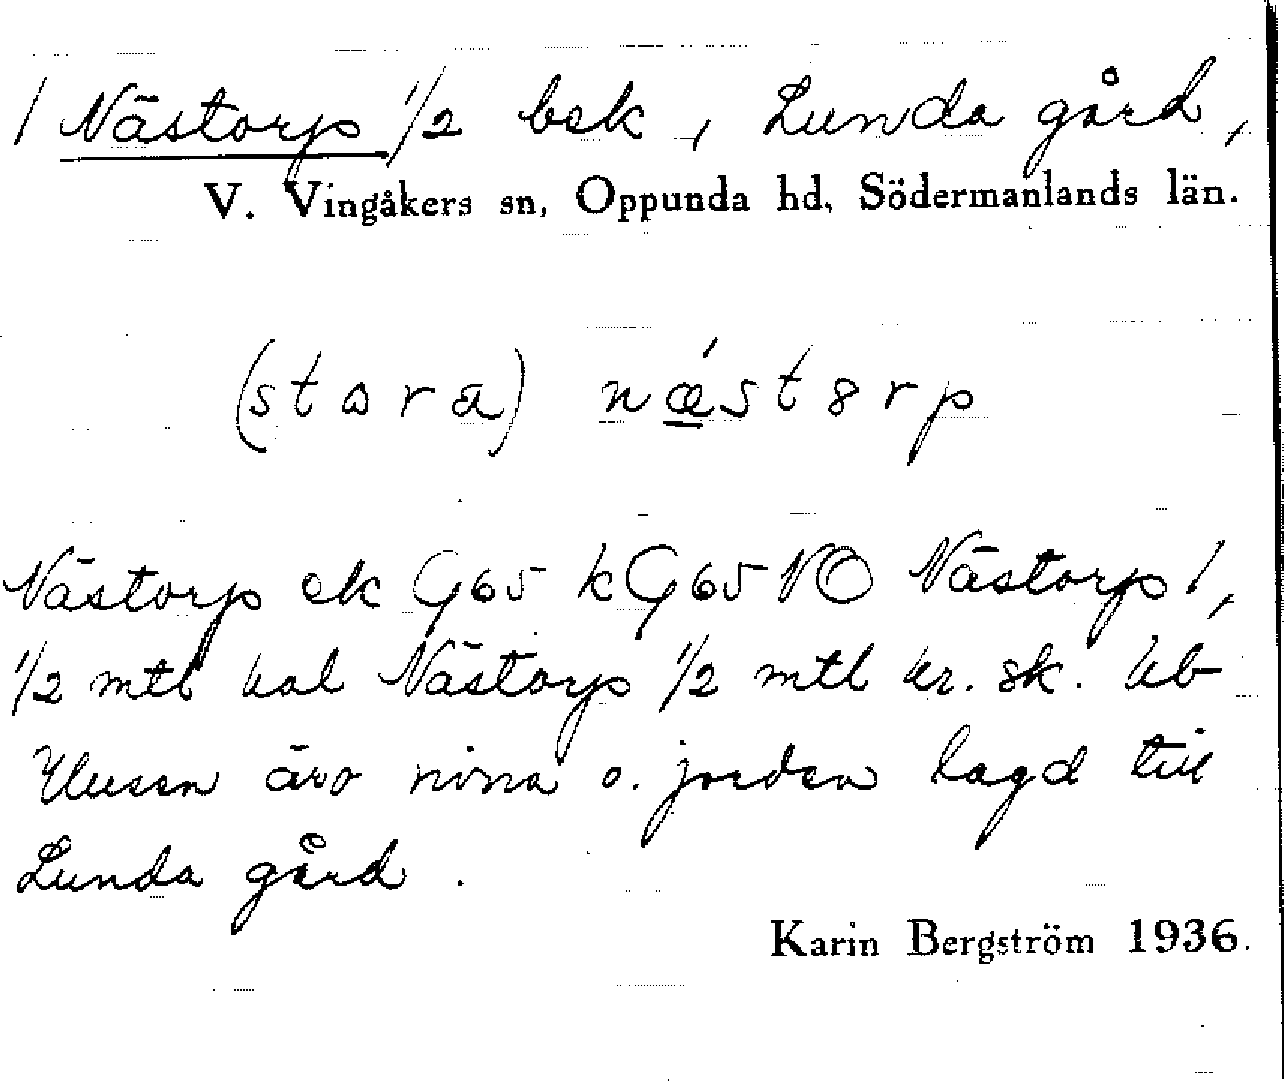 1 Nästorp 1/2 bsk, Lunda gård,
V. Vingåkers sn, Oppunda hd, Södermanlands län.
(stora) nǽ̲storp
Nästorp ek G65 kG65 NO Nästorp 1,
1/2 mtl Nästorp 1/2 mtl kr. sk. ub
Husen äro rivna o. jorden lagd till
Lunda gård.
Karin Bergström 1936.